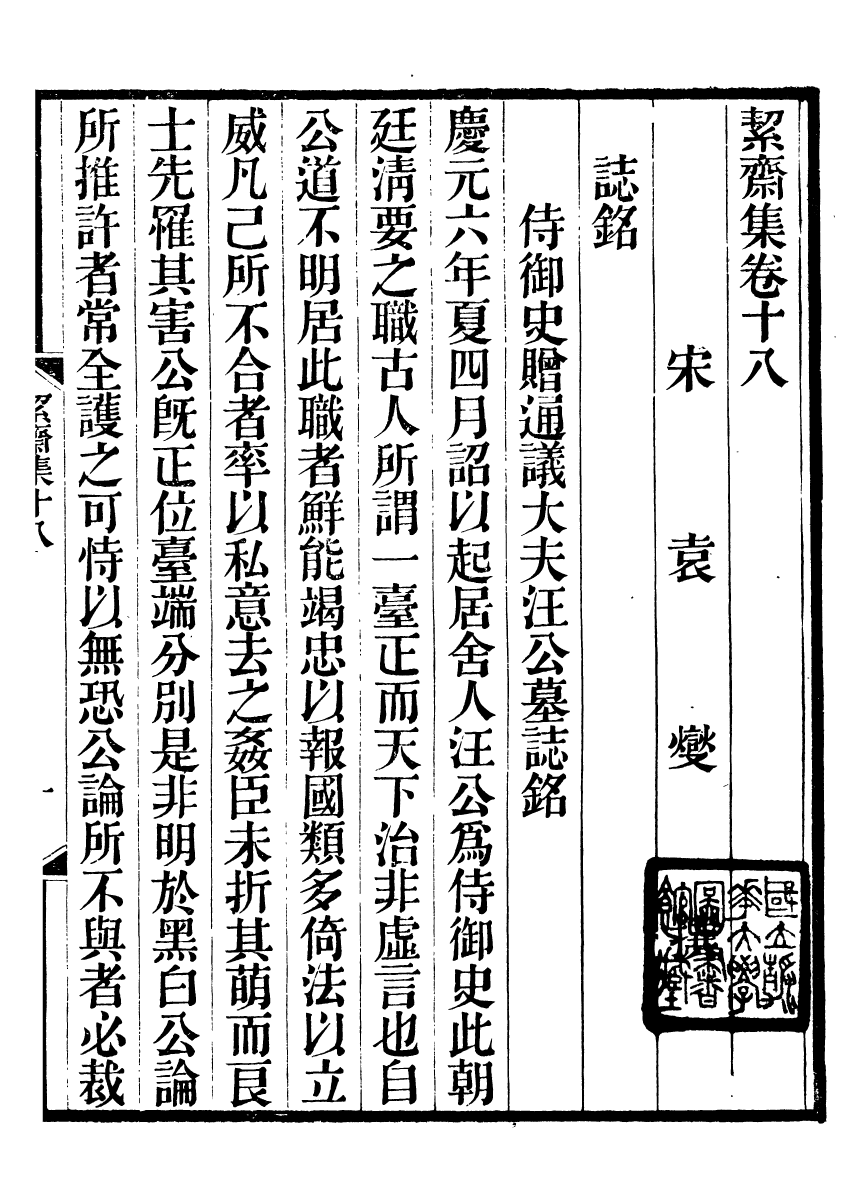 絜齋集卷十八
宋袁燮
誌銘
侍御史贈通議大夫汪公墓誌銘
慶元六年夏四月詔以起居舍人汪公爲侍御史此朝
廷清要之職古人所謂一臺正而天下治非虛言也自
公道不明居此職者鮮能竭忠以報國類多倚法以立
威凡己所不合者率以私意去之姦臣未折其萌而良
士先罹其害公旣正位臺端分別是非明於黑白公論
所推許者常全護之可恃以無恐公論所不與者必裁
絜齋集十八
一
國立清
華大學
圖書
館藏